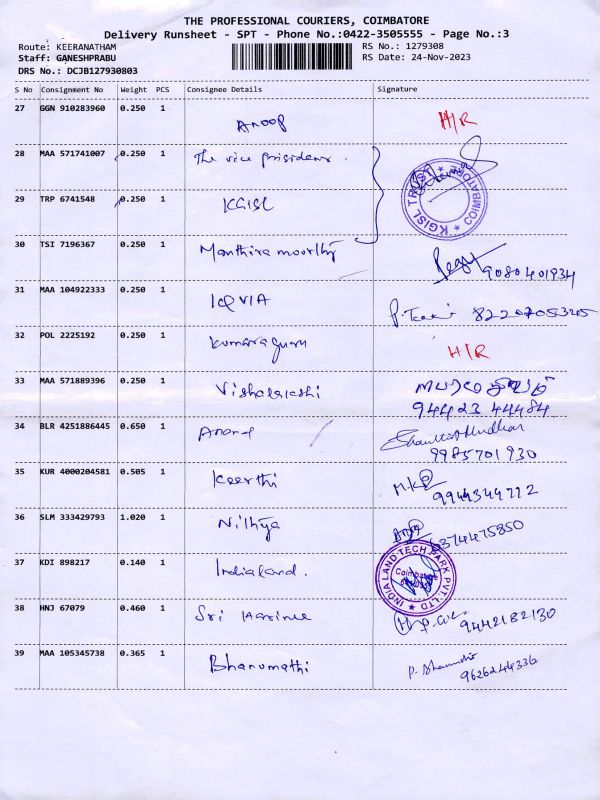 THE PROFESSIONAL COURIERS, COIMBATORE
Delivery Runsheet - SPT - Phone No.:0422-3505555 - Page No.:3
Route: KEERANATHAM RS No.: 1279308
Staff: GANESHPRABU RS Date: 24-Nov-2023
DRS No.: DCJB127930803
S No Consignment No Weight PCS Consignee Details Signature
27 GGN 910283960 0.250 1 Anoop H/R
28 MAA 571741007 0.250 1 The vice prisident.
29 TRP 6741548 0.250 1 KGISL
KGISL TRUST * COIMBATORE *
30 TSI 7196367 0.250 1 Manthiramoorthy 9080401934
31 MAA 104922333 0.250 1 IQVIA
32 POL 2225192 0.250 1 Kumaraguru H/R
33 MAA 571889396 0.250 1 Vishalakshi 94423 44484
34 BLR 4251886445 0.650 1 Anand 9985701930
35 KUR 4000204581 0.505 1 Keerthi M.K 9944344772
36 SLM 333429793 1.020 1 Nithya 6374475850
37 KDI 898217 0.140 1 Indialand.
INDIA LAND TECH PARK PVT. LTD * Coimbatore
38 HNJ 67079 0.460 1 Sri Harinee 9442182130
39 MAA 105345738 0.365 1 Bhanumathi 9626244336